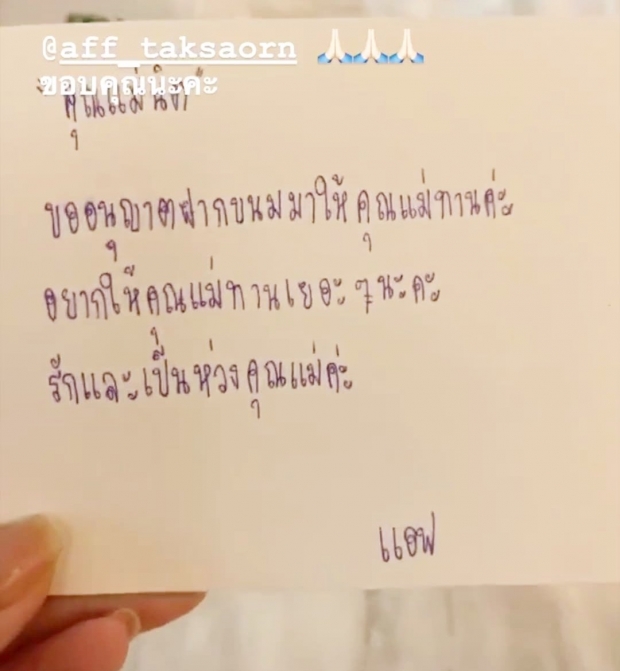 @aff_taksaorn 🙏🏻🙏🏻🙏🏻
ขอบคุณนะคะ
คุณแม่
ขออนุญาตฝากขนมมาให้คุณแม่ทานค่ะ
อยากให้คุณแม่ทานเยอะ ๆ นะคะ
รักและเป็นห่วงคุณแม่ค่ะ
แอฟ